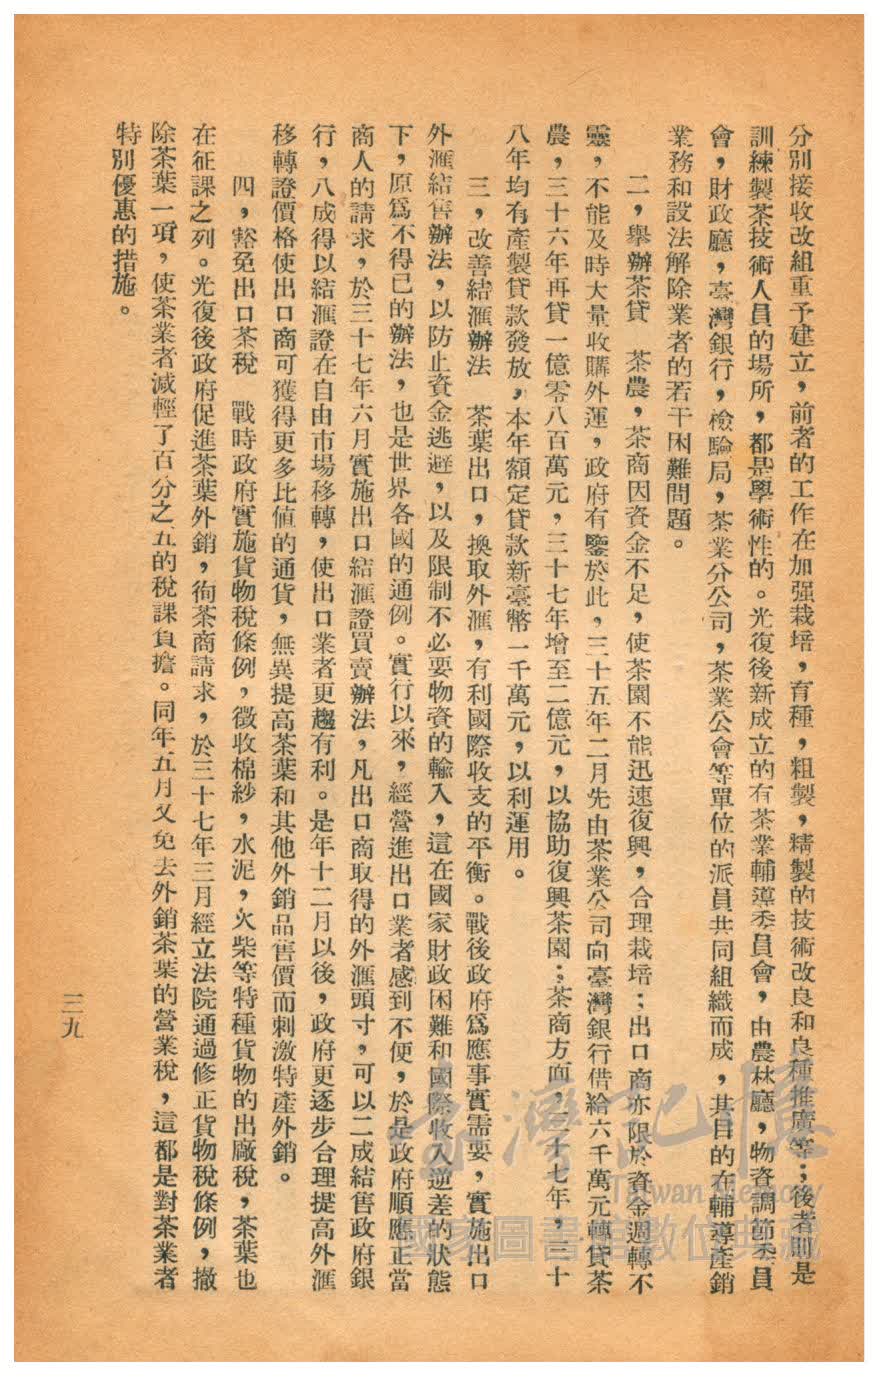 分別接收改組重予建立，前者的工作在加强栽培，育種，粗製，精製的技術改良和良種推廣等；後者則是
訓練製茶技術人員的場所，都是學術性的。光復後新成立的有茶業輔導委員會，由農林廳，物資調節委員
會，財政廳，臺灣銀行，檢驗局，茶業分公司，茶業公會等單位的派員共同組織而成，其目的在輔導產銷
業務和設法解除業者的若干困難問題。
二，舉辦茶貸　茶農，茶商因資金不足，使茶園不能迅速復興，合理栽培；出口商亦限於資金週轉不
靈，不能及時大量收購外運，政府有鑒於此，三十五年二月先由茶業公司向臺灣銀行借給六千萬元轉貸茶
農，三十六年再貸一億零八百萬元，三十七年增至二億元，以協助復興茶園；茶商方面，三十七年，三十
八年均有產製貸款發放，本年額定貸款新臺幣一千萬元，以利運用。
三，改善結匯辦法　茶葉出口，換取外匯，有利國際收支的平衡。戰後政府爲應事實需要，實施出口
外滙結售辦法，以防止資金逃避，以及限制不必要物資的輸入，這在國家財政困難和國際收入逆差的狀態
下，原爲不得已的辦法，也是世界各國的通例。實行以來，經營進出口業者感到不便，於是政府順應正當
商人的請求，於三十七年六月實施出口結滙證買賣辦法，凡出口商取得的外滙頭寸，可以二成結售政府銀
行，八成得以結滙證在自由市場移轉，使出口業者更趨有利。是年十二月以後，政府更逐步合理提高外滙
移轉證價格使出口商可獲得更多比値的通貨，無異提高茶葉和其他外銷品售價而刺激特產外銷。
四，豁免出口茶稅　戰時政府實施貨物稅條例，徵收棉紗，水泥，火柴等特種貨物的出廠稅，茶葉也
在征課之列。光復後政府促進茶葉外銷，徇茶商請求，於三十七年三月經立法院通過修正貨物稅條例，撤
除茶葉一項，使茶業者減輕了百分之五的稅課負擔。同年五月又免去外銷茶葉的營業稅，這都是對茶業者
特別優惠的措施。
三九
臺灣記憶
Taiwan Memory
國家圖書館數位典藏